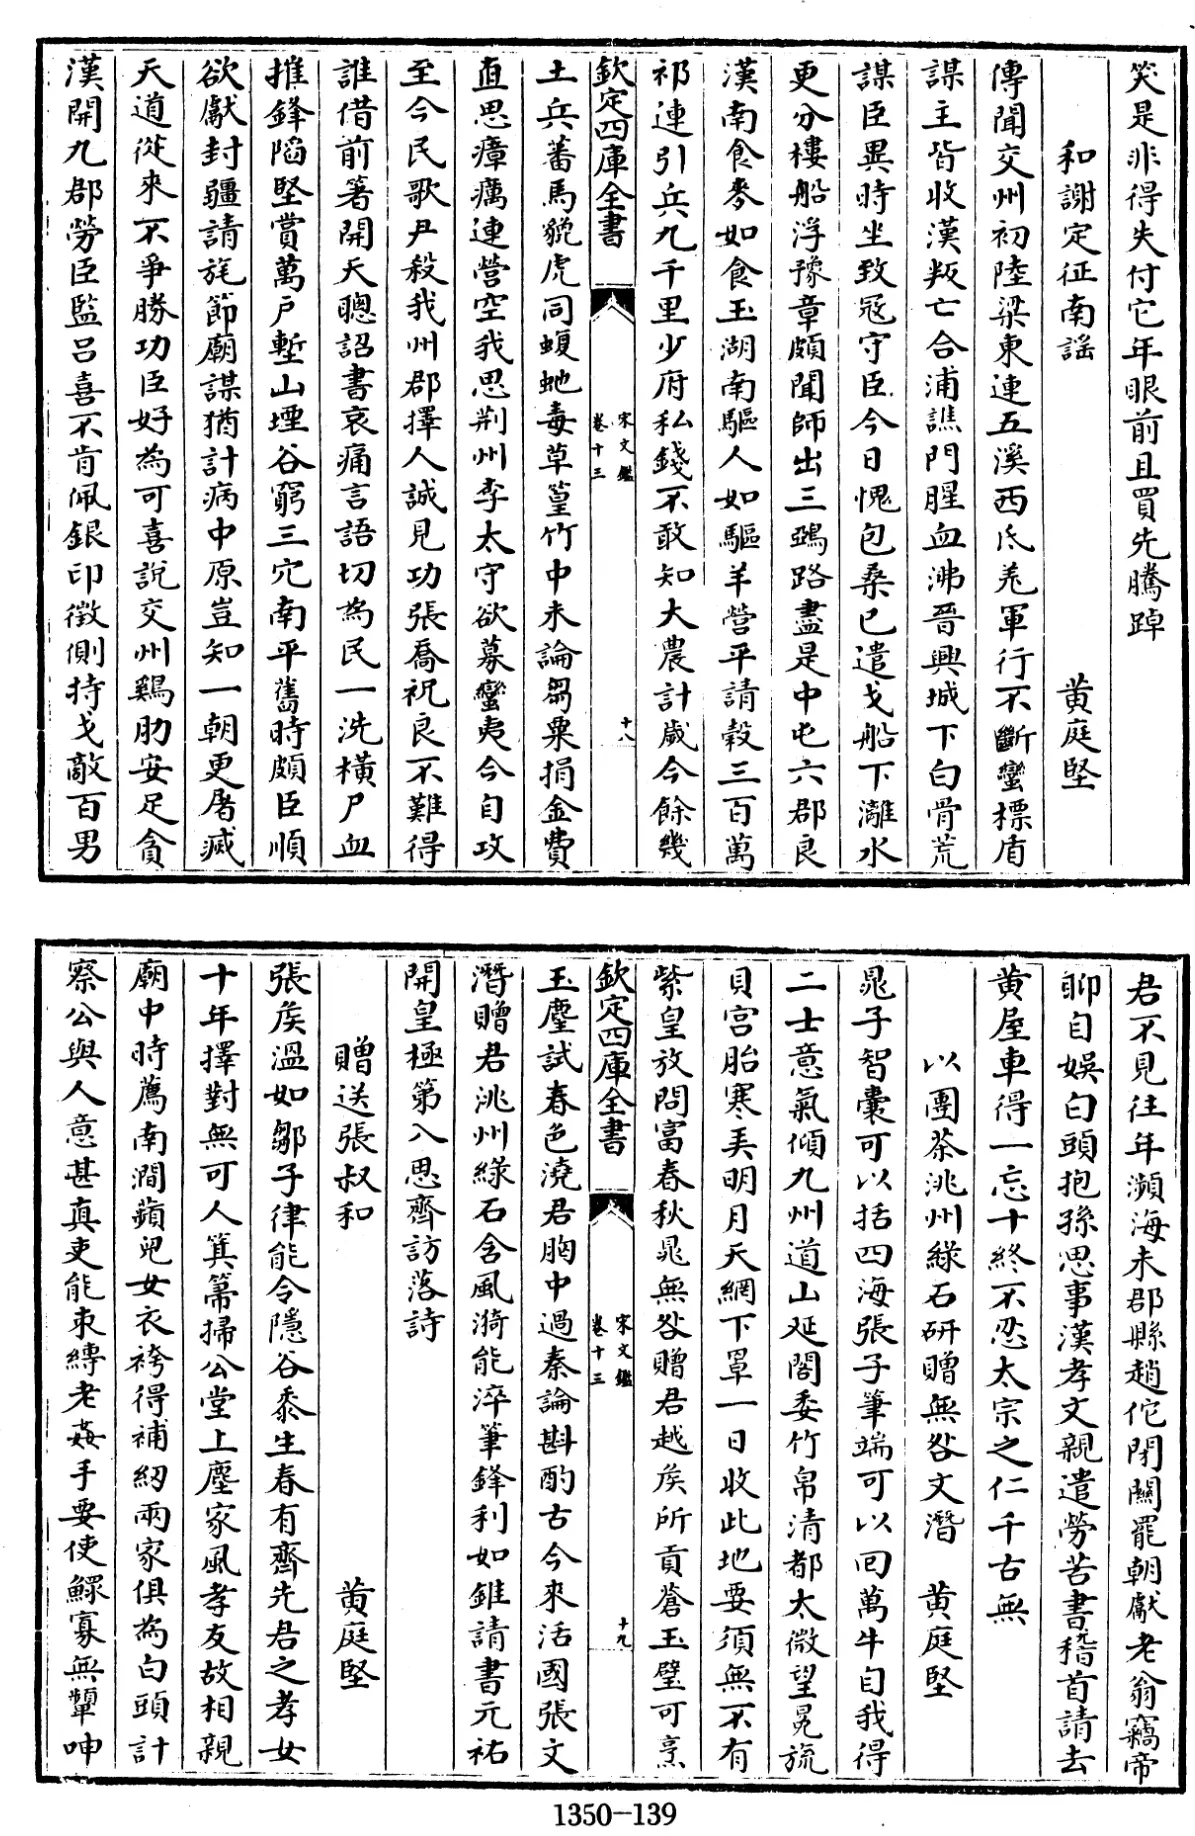 笑是非得失付它年眼前且買先騰踔
和謝定征南謡 黄庭堅
傳聞交州初陸梁東連五溪西氐羌軍行不斷蠻標盾
謀主皆收漢叛亡合浦譙門腥血沸晉興城下白骨荒
謀臣異時坐致冦守臣今日愧包桑已遣戈船下灕水
更分樓船浮豫章頗聞師出三鵶路盡是中屯六郡良
漢南食麥如食玉湖南驅人如驅羊營平請穀三百萬
祁連引兵九千里少府私錢不敢知大農計歲今餘幾
欽定四庫全書 宋文鑑 卷十三 十八
土兵蕃馬貔虎同蝮虵毒草篁竹中未論芻粟捐金費
直思瘴癘連營空我思荆州李太守欲募蠻夷令自攻
至今民歌尹殺我州郡擇人誠見功張喬祝良不難得
誰借前箸開天聰詔書哀痛言語切為民一洗横尸血
摧鋒陷堅賞萬户塹山堙谷窮三穴南平舊時頗臣順
欲獻封疆請旄節廟謀猶計病中原豈知一朝更屠滅
天道從來不爭勝功臣好為可喜說交州鷄肋安足貪
漢開九郡勞臣監吕喜不肯佩銀印徴側持戈敵百男
君不見往年瀕海未郡縣趙佗閉關罷朝獻老翁竊帝
聊自娱白頭抱孫思事漢孝文親遣勞苦書稽首請去
黄屋車得一忘十終不忍太宗之仁千古無
以團茶洮州緑石研贈無咎文潛 黄庭堅
晁子智囊可以括四海張子筆端可以回萬牛自我得
二士意氣傾九州道山延閣委竹帛清都太微望冕旒
貝宫胎寒弄明月天網下罩一日收此地要須無不有
紫皇放問富春秋晁無咎贈君越侯所貢蒼玉璧可烹
欽定四庫全書 宋文鑑 卷十三 十九
玉塵試春色澆君胸中過秦論斟酌古今來活國張文
潛贈君洮州緑石含風漪能淬筆鋒利如錐請書元祐
開皇極第入思齊訪落詩
贈送張叔和 黄庭堅
張侯温如鄒子律能令隱谷黍生春有齊先君之孝女
十年擇對無可人箕箒掃公堂上塵家風孝友故相親
廟中時薦南澗蘋兒女衣袴得補紉兩家俱為白頭計
察公與人意甚真吏能束縳老姦手要使鰥寡無顰呻
1350-139